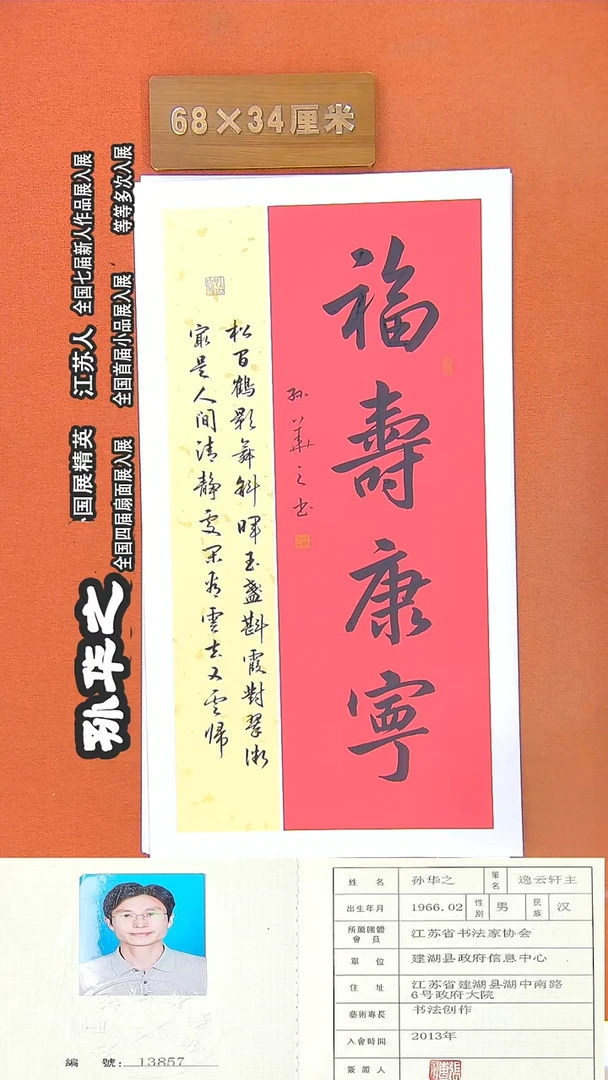 68×34厘米
国展精英 江苏人 全国七届新人作品展入展
全国四届扇面展入展 全国首届小品展入展 等等多次入展
孙华之
福壽康寧
孙華之书
松百鶴影舞斜暉玉盞斟霞對翠微
最是人间清静处闲看雲去又雲归
姓名 孙华之 筆名 逸云轩主
出生年月 1966.02 性别 男 民族 汉
所屬團體會員 江苏省书法家协会
單位 建湖县政府信息中心
住址 江苏省建湖县湖中南路
6号政府大院
藝術專長 书法创作
入會時間 2013年
簽證人
編號: 13857